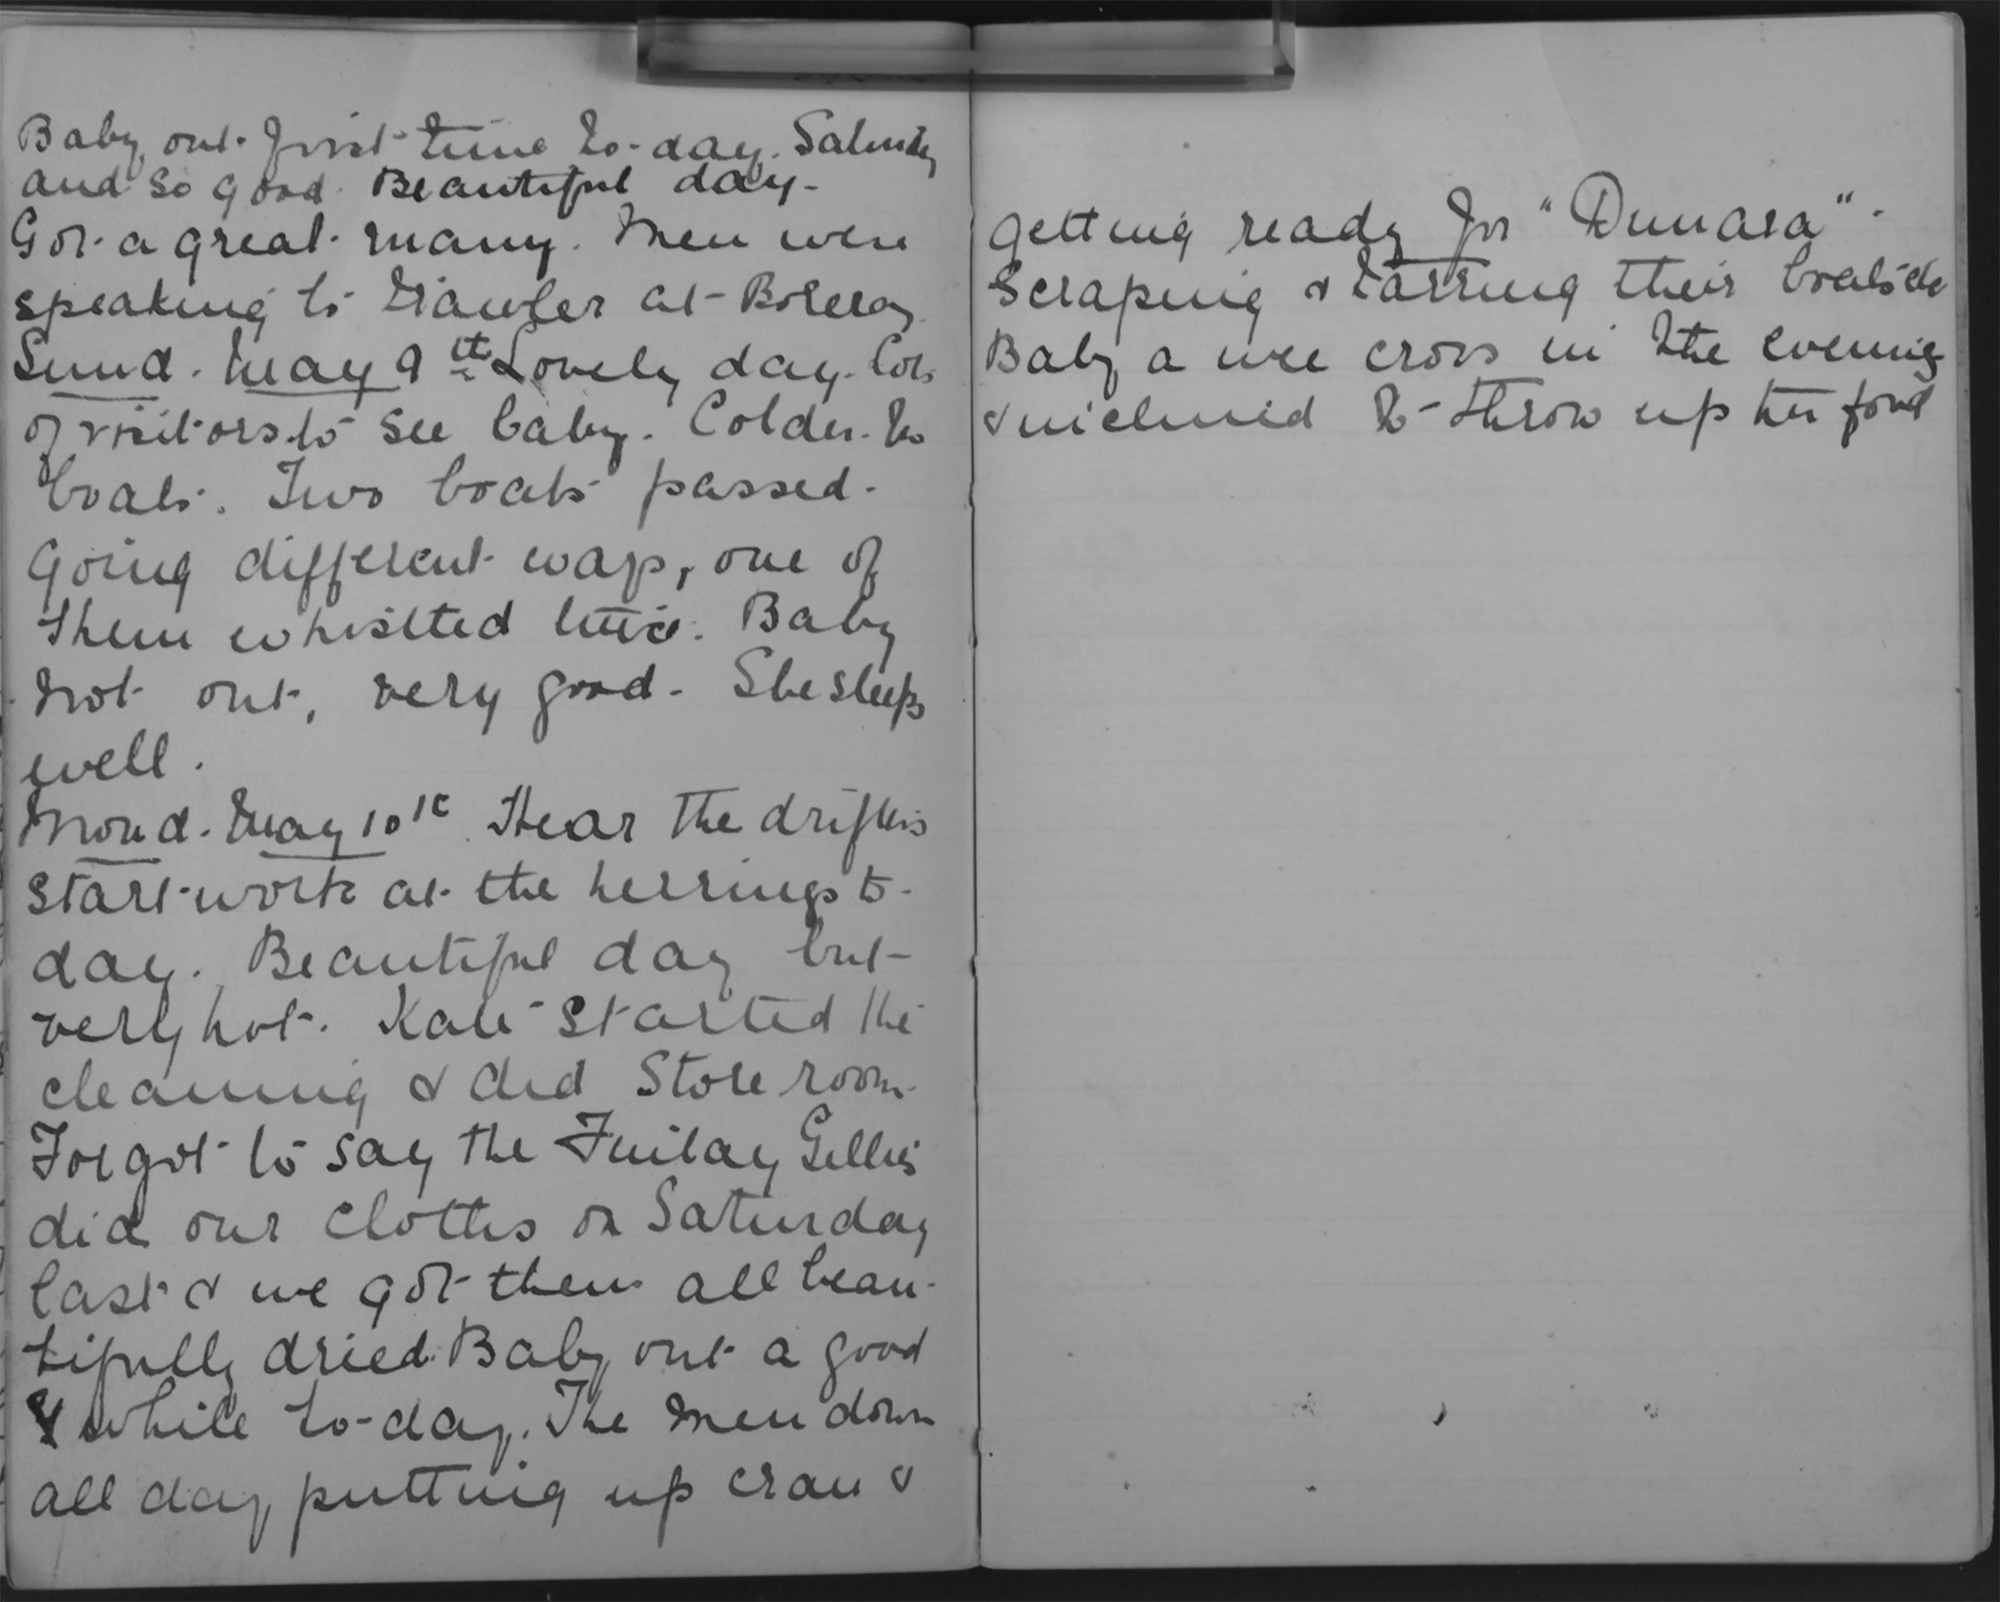 Baby out first time to-day. Saturday
and so good. Beautiful day.
Got a great many. Men were
speaking to trawler at Boreray.
Sund. May 9th Lovely day. Lots
of visitors to see baby. Colder. No
boats. Two boats passed.
Going different ways, one of
them whistled twice. Baby
not out, very good. She sleeps
well.
Mond. May 10th Hear the drifters
start work at the herrings to-
day. Beautiful day but
very hot. Kate started the
cleaning & did Store room.
Forgot to say the Finlay Gillies
did our clothes on Saturday
last & we got them all beau-
tifully dried. Baby out a good
while to-day. The men down
all day putting up cran &
getting ready for "Dunara".
Scraping & tarring their boats etc
Baby a wee cross in the evening
& inclined to throw up her food